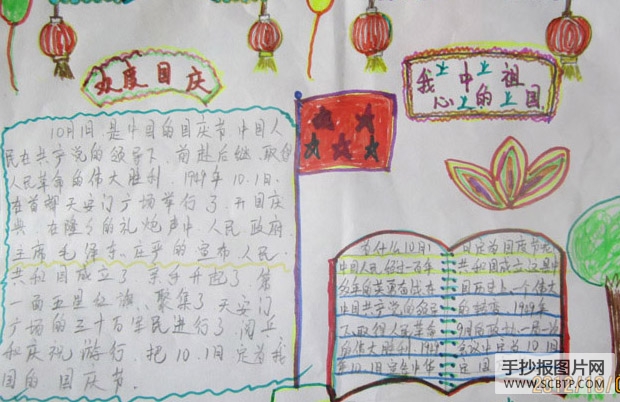 欢度国庆
我心中的祖国
10月1日是中国的国庆节 中国人
民在共产党的领导下,前赴后继,取得
人民革命的伟大胜利,1949年10.1日,
在首都天安门广场举行了开国庆
典,在隆隆的礼炮声中,人民政府
主席毛泽东庄严的宣布人民
共和国成立了 亲手升起了第
一面五星红旗。聚集了天安门
广场的三十万军民进行了阅兵
和庆祝游行。把10.1日定为我
国的国庆节。
为什么10月1
中国人民经过一百年
多年的英勇
中国共产党的领导
下取得人民革命
的伟大胜利.1949
年10.1日
日定为国庆节呢
共和国成立这是中
国历史上一个伟大
的转变.1949年
定国
手抄报图片网
WWW.SCBTP.COM